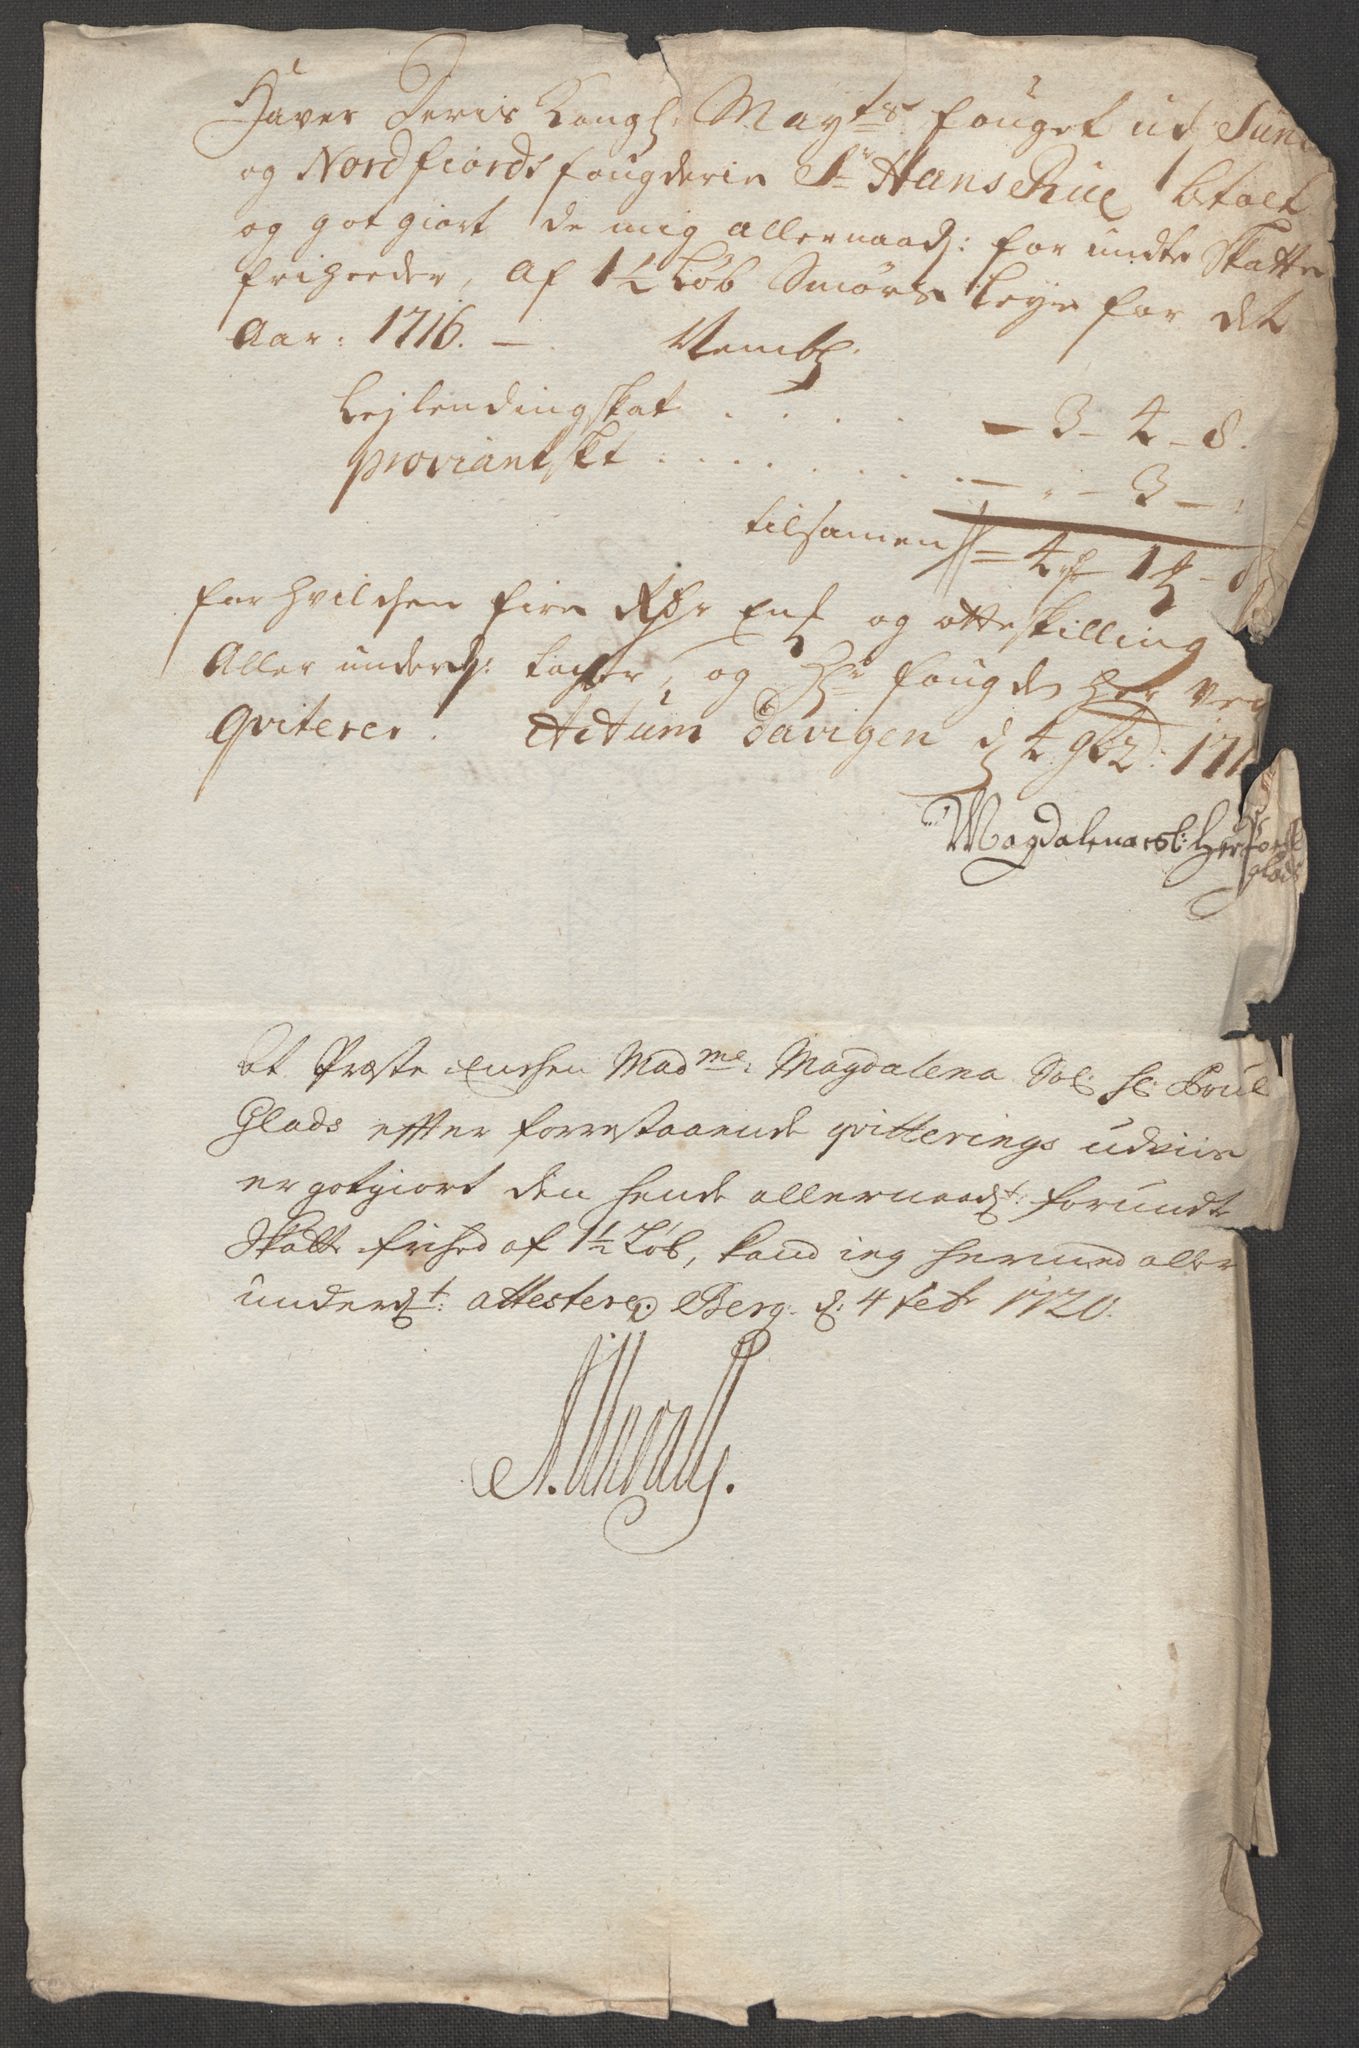 Haver Deris Kongl: Mayts fouget ud Sund
og Nordfiords fougderie Sr Hans Rue btalt
og got giort de mig allernaad: for undte Skatte
friheeder, af 1½ Løb Smørs Leye for det
Aar: 1716. — Nembl:
Leylendingskat . . . . . — 3 — 4 — 8.
proviantskt . . . . . . . — — 3 —
tilsamen = 4 rd 1 — 8
for hvilchen fire Rdr og otte skilling
Aller underd: og Hr fougden her ved
qviterer. Actum Davigen d 4 9br: 171
Magdalena Sl: Her
Glads
At Præste Enchen Madme: Magdalena Sal: Hr: Povel
Glads effter forrestaaende qvitterings udviis
er gotgiort den hende allernaadst: forundte
Skatte frihed af 1½ Løb, kand ieg hermed aller
underdt: attestere. Berg. d: 4 Febr 1720.